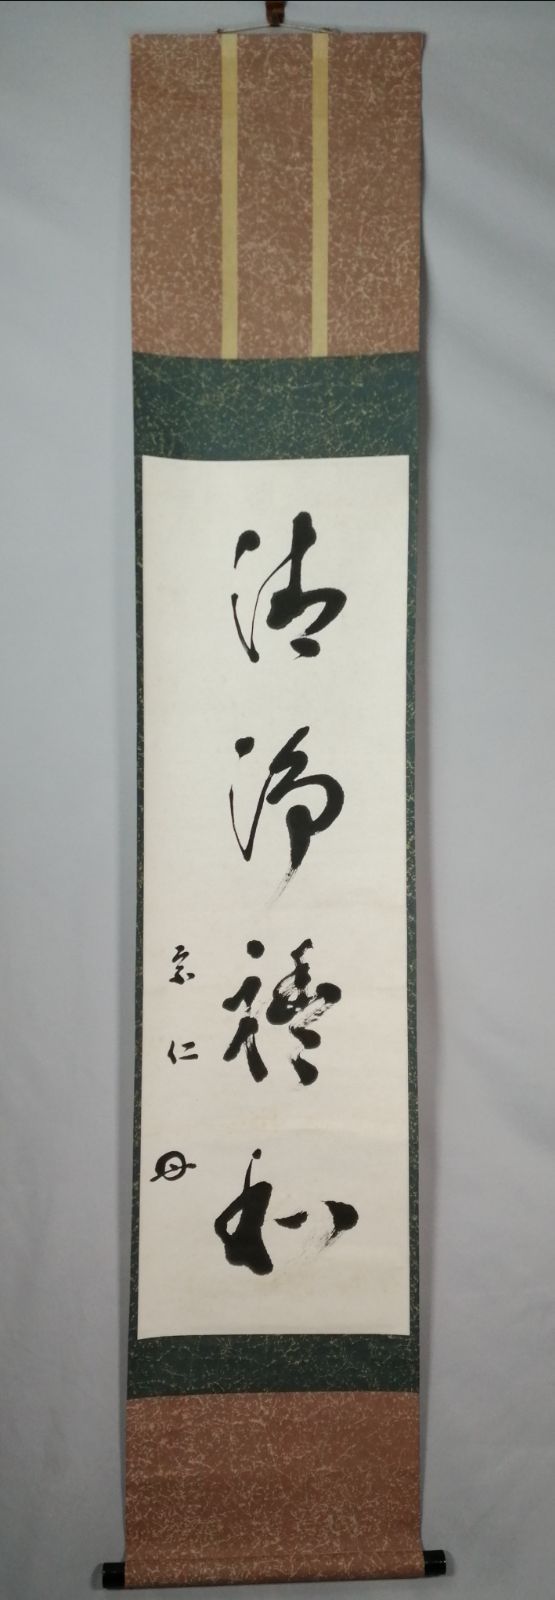 清浄禮和
宗仁